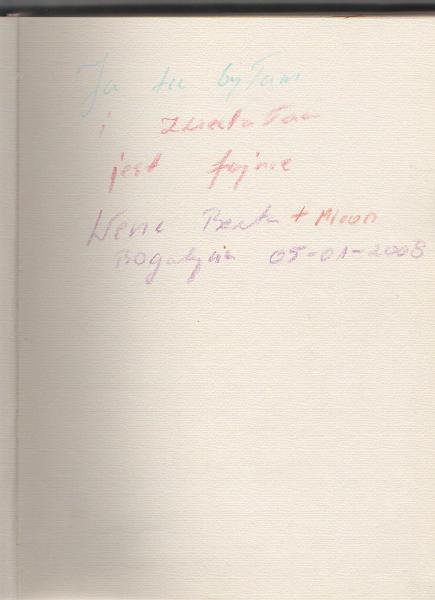 Ja tu byłam
i
jest fajnie
Beata + Miron
Bogatynia 05-01-2008